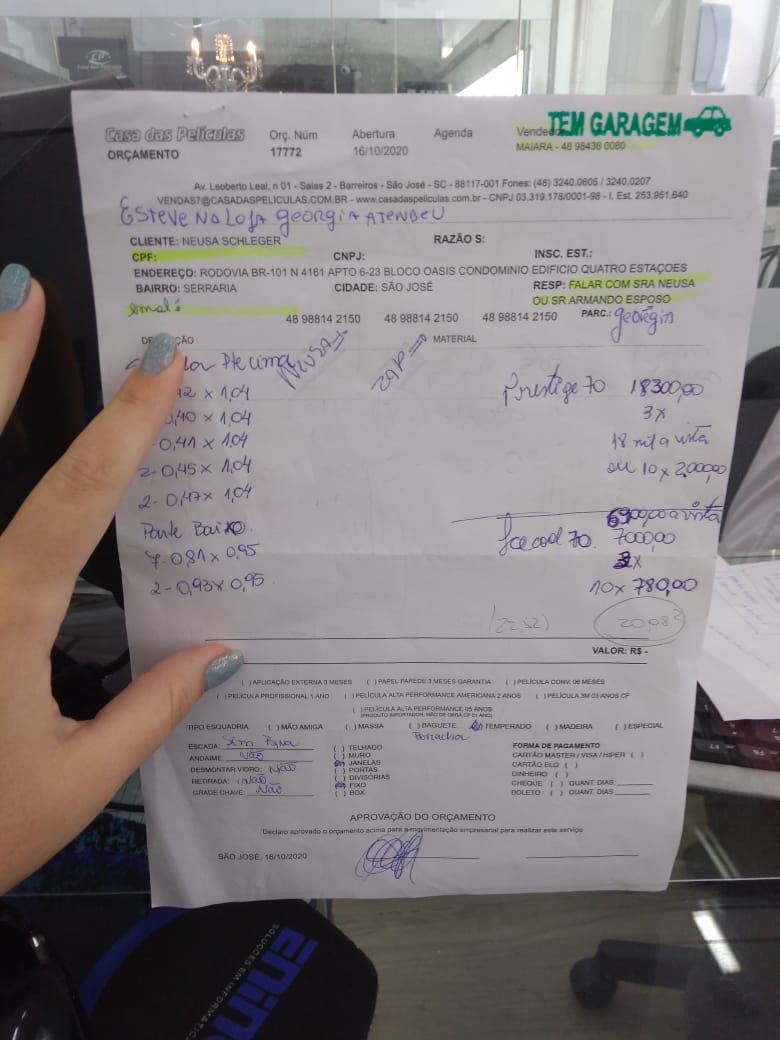 Casa das Películas
ORÇAMENTO
Orç. Núm
17772
Abertura
16/10/2020
Agenda
TEM GARAGEM
MAIARA - 48 98436 0080
Av. Leoberto Leal, n 01 - Salas 2 - Barreiros - São José - SC - 88117-001 Fones: (48) 3240.0605 / 3240.0207
VENDAS7@CASADASPELICULAS.COM.BR - www.casadaspeliculas.com.br - CNPJ 03.319.178/0001-98 - I. Est. 253.951.640
ESTEVE NA LOJA GEORGIA ATENDEU
CLIENTE: NEUSA SCHLEGER RAZÃO S:
CPF: CNPJ: INSC. EST.:
ENDEREÇO: RODOVIA BR-101 N 4161 APTO 6-23 BLOCO OASIS CONDOMINIO EDIFICIO QUATRO ESTAÇOES
BAIRRO: SERRARIA CIDADE: SÃO JOSÉ RESP: FALAR COM SRA NEUSA
OU SR ARMANDO ESPOSO
48 98814 2150 48 98814 2150 48 98814 2150 PARC.: georgia
MATERIAL
NEUSA
ZAP
Pte cima
12 x 1,04
0,40 x 1,04
0,41 x 1,04
2- 0,45 x 1,04
2- 0,47 x 1,04
Parte Baixo
7- 0,81 x 0,95
2- 0,93 x 0,95
Prestige 70 18300,00
3x
18 mil a vista
ou 10x 2.000,00
6900,00 a vista
70. 7000,00
10x 780,00
(22,52) 20,98²
VALOR: R$ -
( ) APLICAÇÃO EXTERNA 3 MESES ( ) PAPEL PAREDE 3 MESES GARANTIA ( ) PELÍCULA CONV. 06 MESES
( ) PELÍCULA PROFISSIONAL 1 ANO ( ) PELÍCULA ALTA PERFORMANCE AMERICANA 2 ANOS ( ) PELÍCULA 3M 03 ANOS CP
( ) PELÍCULA ALTA PERFORMANCE 05 ANOS
TIPO ESQUADRIA ( ) MÃO AMIGA ( ) MASSA ( ) BAGUETE ( ) TEMPERADO ( ) MADEIRA ( ) ESPECIAL
Borracha
ESCADA: Sim
ANDAIME: Não
DESMONTAR VIDRO: Não
RETIRADA: Não
GRADE CHAVE: Não
( ) TELHADO
( ) MURO
( ) JANELAS
( ) PORTAS
( ) DIVISÓRIAS
( ) FIXO
( ) BOX
FORMA DE PAGAMENTO
CARTÃO MASTER / VISA / HIPER ( )
CARTÃO ELO ( )
DINHEIRO ( )
CHEQUE ( ) QUANT. DIAS
BOLETO ( ) QUANT. DIAS
APROVAÇÃO DO ORÇAMENTO
Declaro aprovado o orçamento acima para a movimentação empresarial para realizar este serviço
SÃO JOSÉ, 16/10/2020
SOLUÇÕES EM INFORMÁTICA